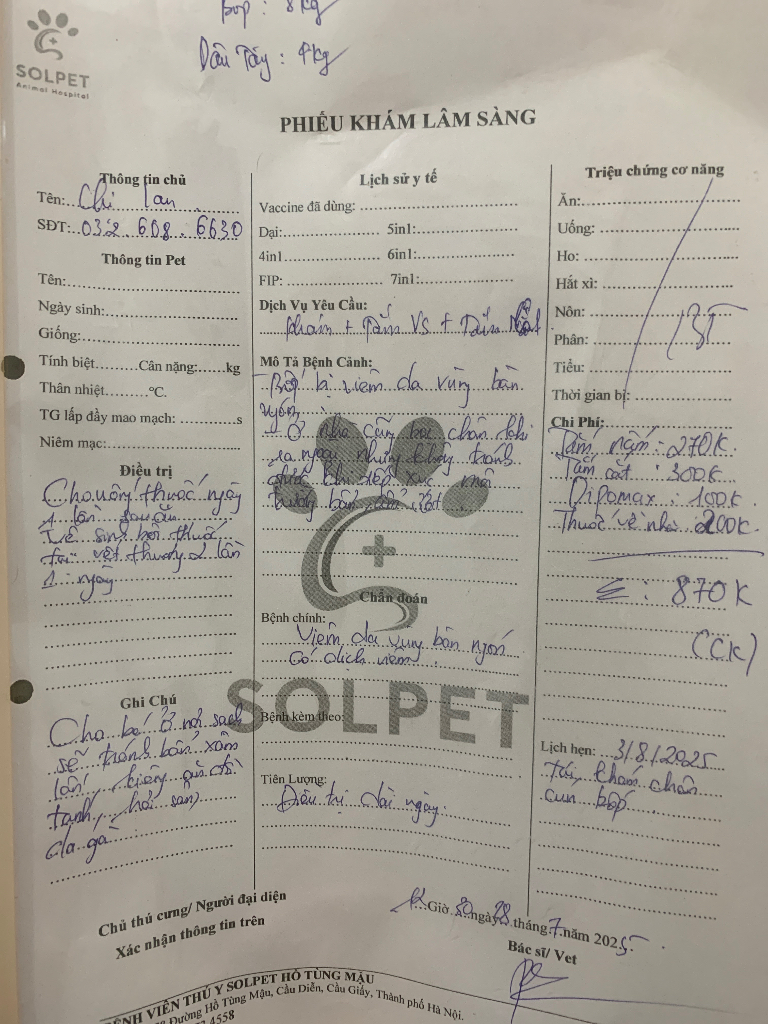 Bop : 8kg
Dâu Tây : 4kg
SOLPET
Animal Hospital
PHIẾU KHÁM LÂM SÀNG
Thông tin chủ
Tên: Chị lan
SĐT: 032 608 . 6630
Thông tin Pet
Tên:
Ngày sinh:
Giống:
Tính biệt Cân nặng: kg
Thân nhiệt °C.
TG lấp đầy mao mạch: s
Niêm mạc:
Điều trị
Cho uống thuốc ngày
1 lần sau ăn
vệ sinh bôi thuốc
tại vết thương 2 lần
1 ngày
Ghi Chú
Cho bé ở nơi sạch
sẽ tránh bẩn xâm
lấn, kiêng đồ
tanh, hải sản,
da gà
Lịch sử y tế
Vaccine đã dùng:
Dại: 5in1:
4in1 6in1:
FIP: 7in1:
Dịch Vụ Yêu Cầu:
khám + Tắm VS + Tắm
Mô Tả Bệnh Cảnh:
Bốp bị viêm da vùng bàn
ngón
Ở nhà cũng bọc chân khi
ra ngoài nhưng không tránh
được khi tiếp xúc môi
trường bẩn, ẩm ướt
Chẩn đoán
Bệnh chính:
Viêm da vùng bàn ngón
Có dịch viêm
SOLPET
Bệnh kèm theo:
Tiên Lượng:
Điều trị dài ngày
Triệu chứng cơ năng
Ăn:
Uống:
Ho:
Hắt xì:
Nôn:
Phân:
Tiểu:
Thời gian bị:
BT
Chi Phí:
Tắm nấm : 270K
Tắm cắt : 300K
Dipomax : 100K
Thuốc về nhà 200K
Σ : 870K
(CK)
Lịch hẹn: 3/8/2025
tái khám chân
cun bốp
Giờ 30 ngày 28 tháng 7 năm 2025
Bác sĩ/ Vet
Chủ thú cưng/ Người đại diện
Xác nhận thông tin trên
BỆNH VIỆN THÚ Y SOLPET HỒ TÙNG MẬU
Đường Hồ Tùng Mậu, Cầu Diễn, Cầu Giấy, Thành phố Hà Nội.
4558